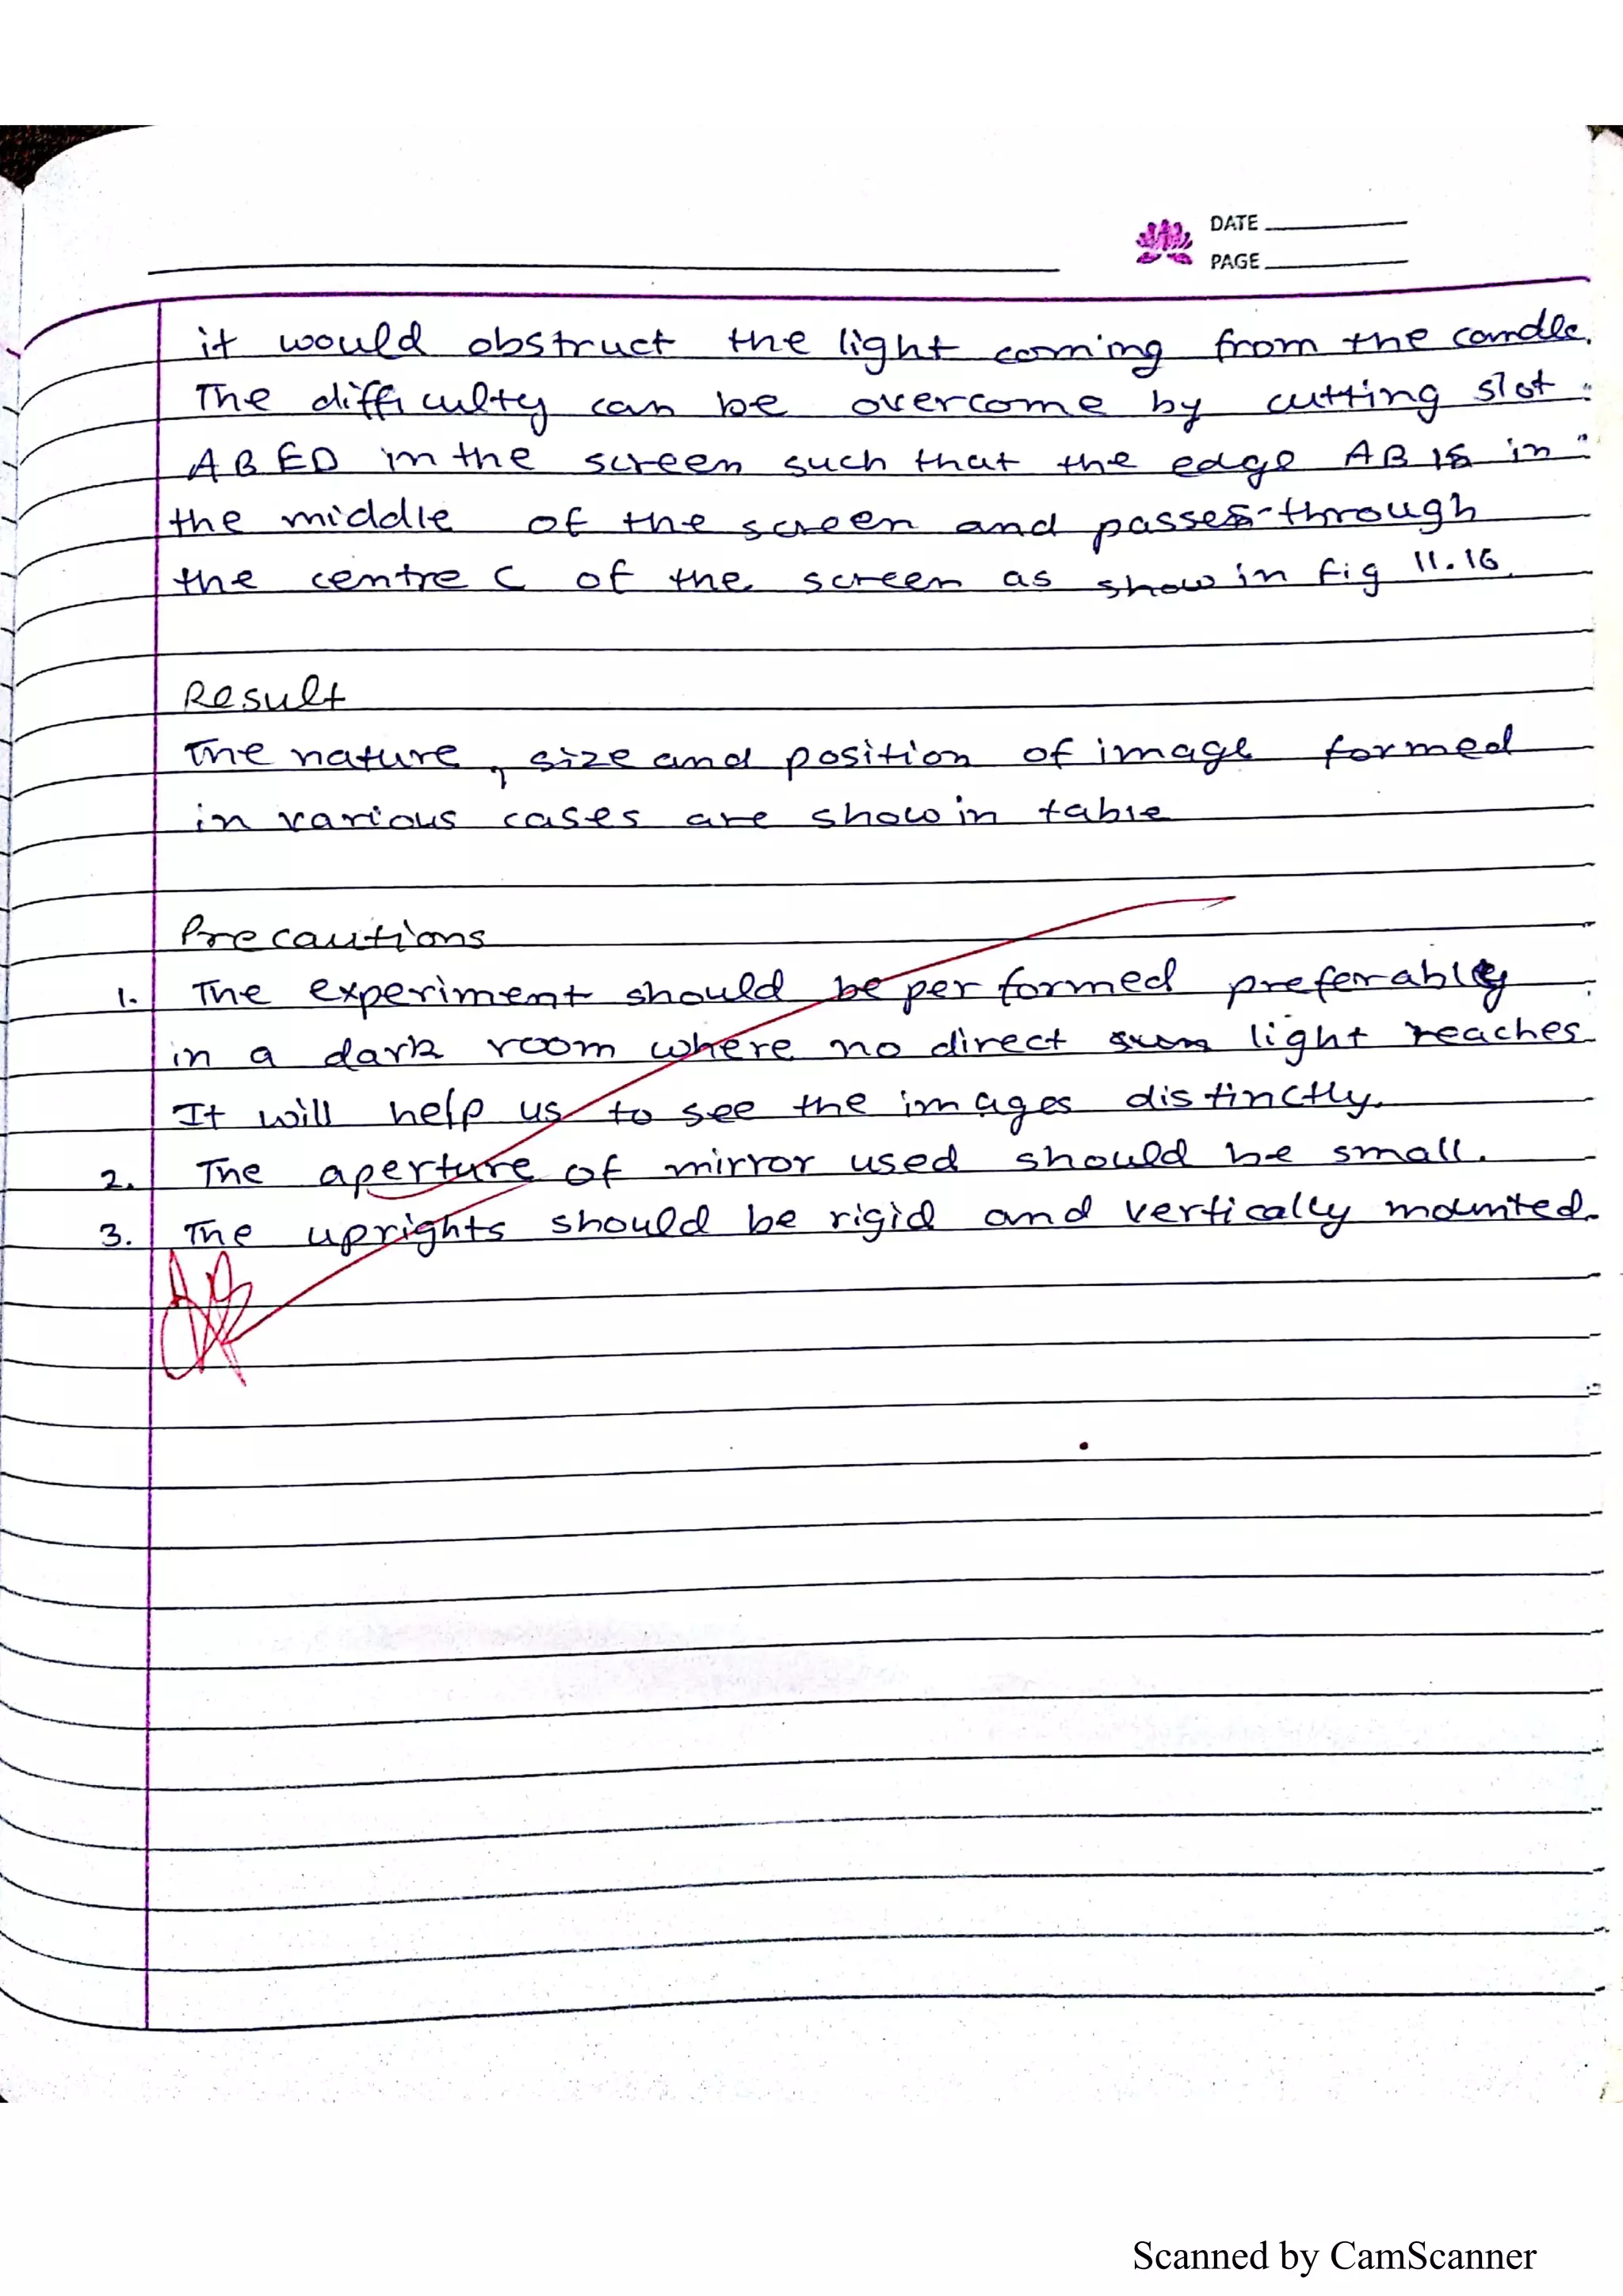 DATE
PAGE
it would obstruct the light coming from the candle.
The difficulty can be overcome by cutting slot
ABED in the screen such that the edge AB is in
the middle of the screen and passes through
the centre C of the screen as show in fig 11.16.
Result
The nature, size and position of image formed
in various cases are show in table
Precautions
1. The experiment should be performed preferably
in a dark room where no direct sun light reaches
It will help us to see the images distinctly.
2. The aperture of mirror used should be small.
3. The uprights should be rigid and vertically mounted.
Scanned by CamScanner